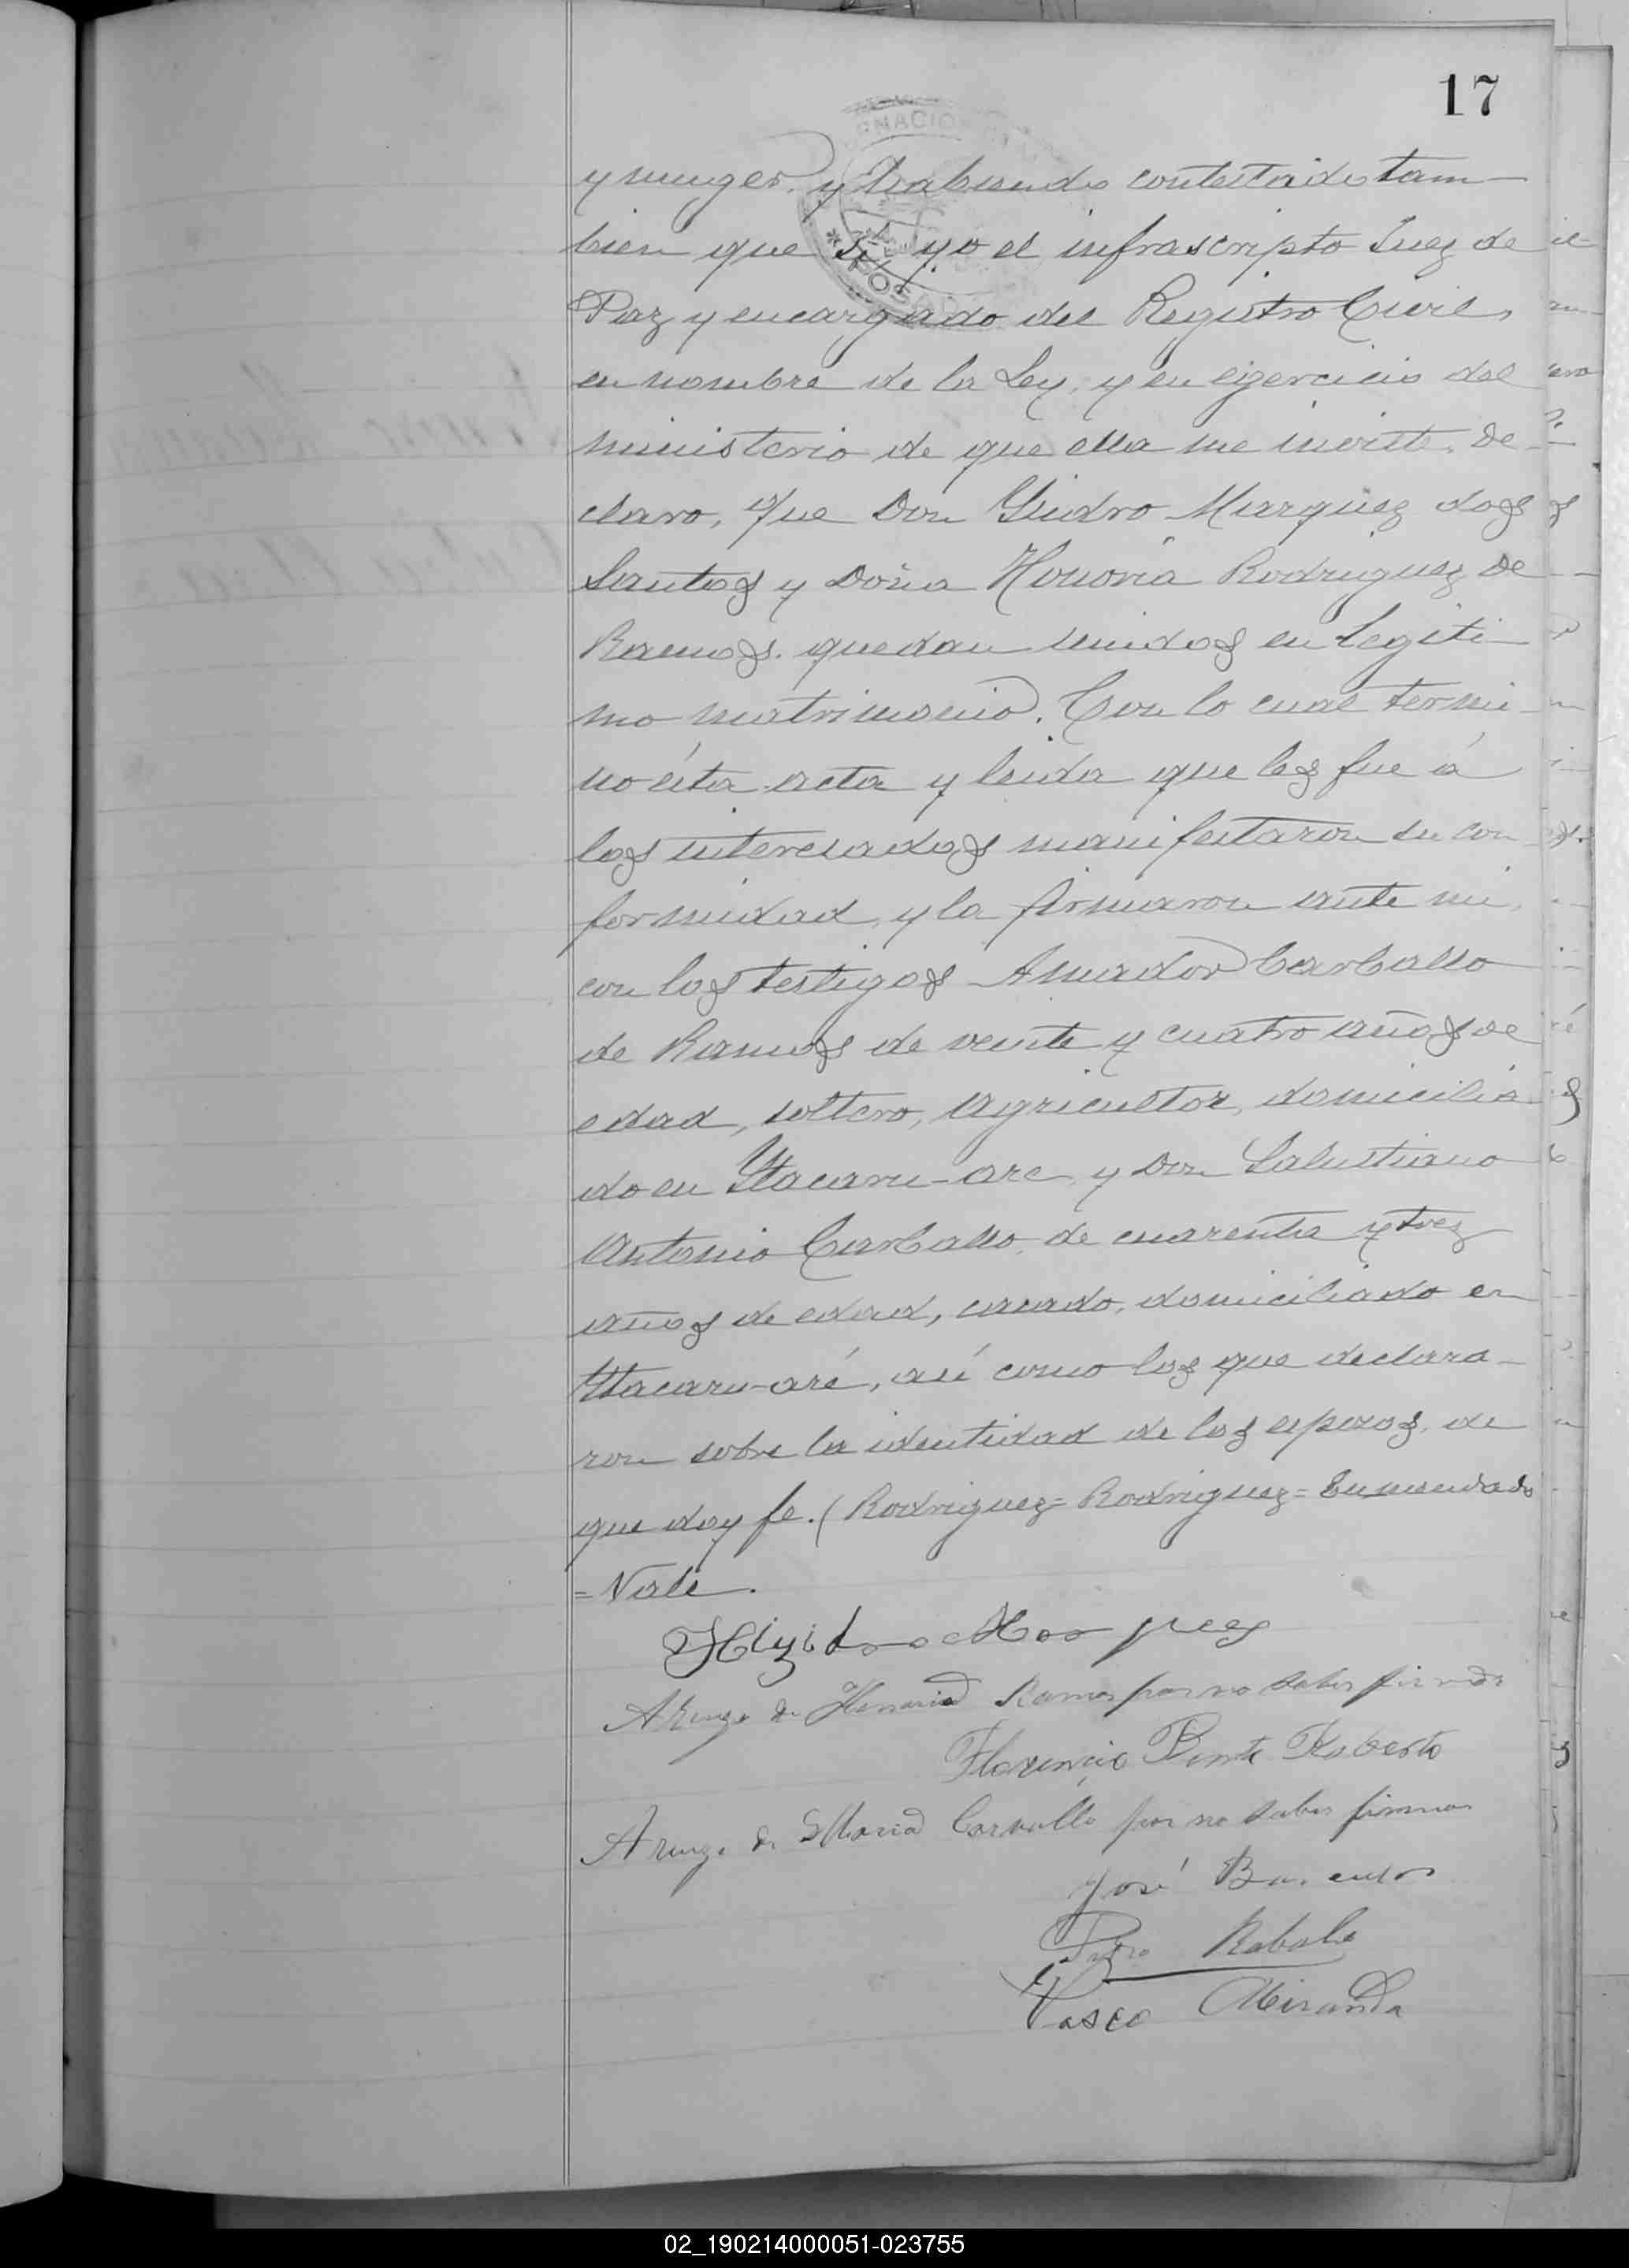 17
y muger. y habiendo contestado tam-
bien que si, yo el infrascripto Juez de
Paz y encargado del Registro Civil,
en nombre de la Ley, y en ejercicio del
ministerio de que ella me inviste, de-
claro, que Don Ysidro Marquez dos
Santos y Doña Honoria Rodriguez de
Ramos. quedan unidos en legiti-
mo matrimonio. Con lo cual termi-
nó ésta acta y leida que les fue á
los interesados manifestaron su con
formidad, y la firmaron ante mi,
con los testigos Amador Carballo
de Ramos de veinte y cuatro años de
edad, soltero, agricultor, domicilia
do en Ytacaru-are, y Don Salustiano
Antonio Carballo, de cuarenta y tres
años de edad, casado, domiciliado en
Ytacaru-aré, así como los que declara-
ron sobre la identidad de los esposos, de
que doy fe. (Rodriguez = Rodriguez = Enmendado
= Vale.
A ruego de Honoria Ramos por no saber firmar
Florencio Roberto
A ruego de Maria Carvallo por no saber firmar
José
Pedro
Vasco Miranda
02_190214000051-023755